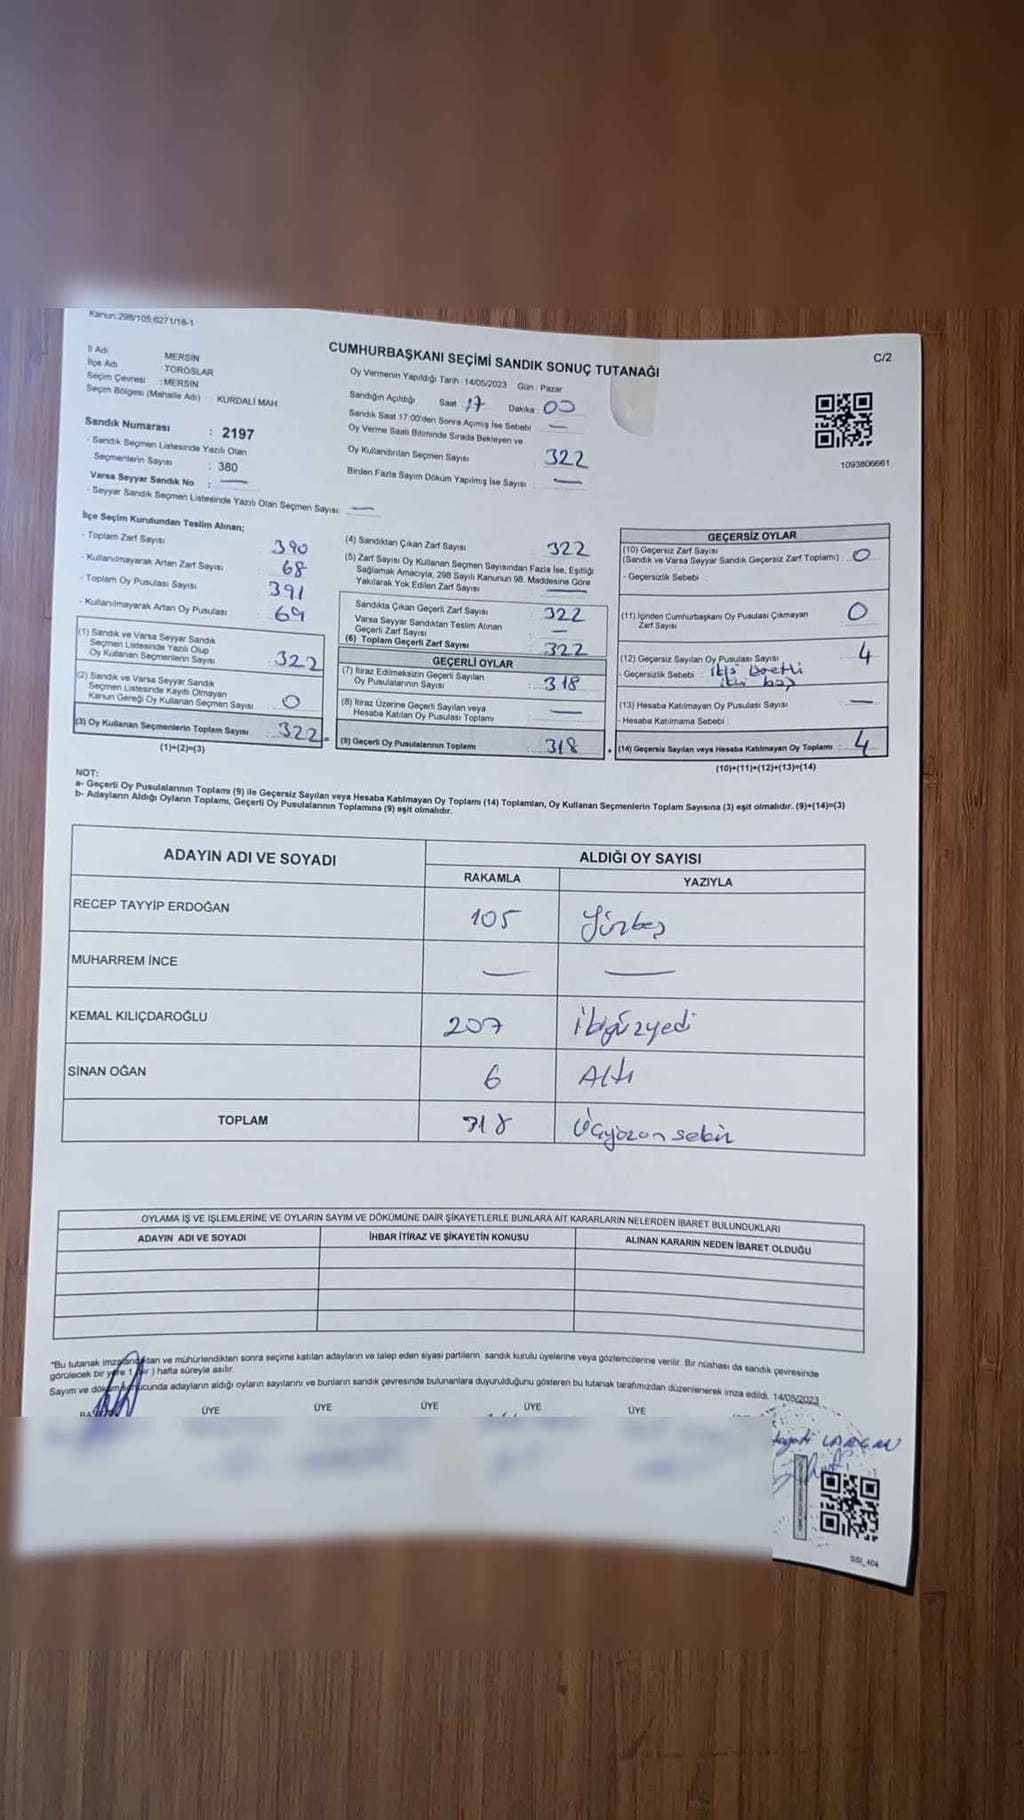 Kanun:298/105;6271/18-1
C/2
CUMHURBAŞKANI SEÇİMİ SANDIK SONUÇ TUTANAĞI
İl Adı MERSİN
İlçe Adı TOROSLAR
Seçim Çevresi :MERSİN
Seçim Bölgesi (Mahalle Adı) : KURDALİ MAH
Sandık Numarası : 2197
- Sandık Seçmen Listesinde Yazılı Olan
Seçmenlerin Sayısı : 380
Varsa Seyyar Sandık No : —
- Seyyar Sandık Seçmen Listesinde Yazılı Olan Seçmen Sayısı: —
Oy Vermenin Yapıldığı Tarih :14/05/2023 Gün : Pazar
Sandığın Açıldığı Saat 17 Dakika 00
Sandık Saat 17:00'den Sonra Açılmış İse Sebebi —
Oy Verme Saati Bitiminde Sırada Bekleyen ve
Oy Kullandırılan Seçmen Sayısı 322
Birden Fazla Sayım Döküm Yapılmış İse Sayısı : —
1093806661
İlçe Seçim Kurulundan Teslim Alınan;
- Toplam Zarf Sayısı 390
- Kullanılmayarak Artan Zarf Sayısı : 68
- Toplam Oy Pusulası Sayısı 391
- Kullanılmayarak Artan Oy Pusulası : 69
(1) Sandık ve Varsa Seyyar Sandık
Seçmen Listesinde Yazılı Olup
Oy Kullanan Seçmenlerin Sayısı : 322
(2) Sandık ve Varsa Seyyar Sandık
Seçmen Listesinde Kayıtlı Olmayan
Kanun Gereği Oy Kullanan Seçmen Sayısı : 0
(3) Oy Kullanan Seçmenlerin Toplam Sayısı : 322
(1)+(2)=(3)
(4) Sandıktan Çıkan Zarf Sayısı 322
(5) Zarf Sayısı Oy Kullanan Seçmen Sayısından Fazla İse, Eşitliği
Sağlamak Amacıyla, 298 Sayılı Kanunun 98. Maddesine Göre
Yakılarak Yok Edilen Zarf Sayısı : —
Sandıkta Çıkan Geçerli Zarf Sayısı 322
Varsa Seyyar Sandıktan Teslim Alınan
Geçerli Zarf Sayısı —
(6) Toplam Geçerli Zarf Sayısı 322
GEÇERLİ OYLAR
(7) İtiraz Edilmeksizin Geçerli Sayılan
Oy Pusulalarının Sayısı : 318
(8) İtiraz Üzerine Geçerli Sayılan veya
Hesaba Katılan Oy Pusulası Toplamı —
(9) Geçerli Oy Pusulalarının Toplamı : 318
GEÇERSİZ OYLAR
(10) Geçersiz Zarf Sayısı
(Sandık ve Varsa Seyyar Sandık Geçersiz Zarf Toplamı) : 0
- Geçersizlik Sebebi :
(11) İçinden Cumhurbaşkanı Oy Pusulası Çıkmayan
Zarf Sayısı 0
(12) Geçersiz Sayılan Oy Pusulası Sayısı 4
- Geçersizlik Sebebi : ikisi
iki boş
(13) Hesaba Katılmayan Oy Pusulası Sayısı : —
- Hesaba Katılmama Sebebi :
(14) Geçersiz Sayılan veya Hesaba Katılmayan Oy Toplamı : 4
(10)+(11)+(12)+(13)=(14)
NOT:
a- Geçerli Oy Pusulalarının Toplamı (9) ile Geçersiz Sayılan veya Hesaba Katılmayan Oy Toplamı (14) Toplamları, Oy Kullanan Seçmenlerin Toplam Sayısına (3) eşit olmalıdır. (9)+(14)=(3)
b- Adayların Aldığı Oyların Toplamı, Geçerli Oy Pusulalarının Toplamına (9) eşit olmalıdır.
ADAYIN ADI VE SOYADI ALDIĞI OY SAYISI
RAKAMLA YAZIYLA
RECEP TAYYİP ERDOĞAN 105 Yüzbeş
MUHARREM İNCE — —
KEMAL KILIÇDAROĞLU 207 ikiyüzyedi
SİNAN OĞAN 6 Altı
TOPLAM 318 Üçyüzonsekiz
OYLAMA İŞ VE İŞLEMLERİNE VE OYLARIN SAYIM VE DÖKÜMÜNE DAİR ŞİKAYETLERLE BUNLARA AİT KARARLARIN NELERDEN İBARET BULUNDUKLARI
ADAYIN ADI VE SOYADI İHBAR İTİRAZ VE ŞİKAYETİN KONUSU ALINAN KARARIN NEDEN İBARET OLDUĞU
"Bu tutanak imzalandıktan ve mühürlendikten sonra seçime katılan adayların ve talep eden siyasi partilerin sandık kurulu üyelerine veya gözlemcilerine verilir. Bir nüshası da sandık çevresinde
görülecek bir yere 1 (bir) hafta süreyle asılır.
Sayım ve döküm sonucunda adayların aldığı oyların sayılarını ve bunların sandık çevresinde bulunanlara duyurulduğunu gösteren bu tutanak tarafımızdan düzenlenerek imza edildi. 14/05/2023
ÜYE ÜYE ÜYE ÜYE ÜYE